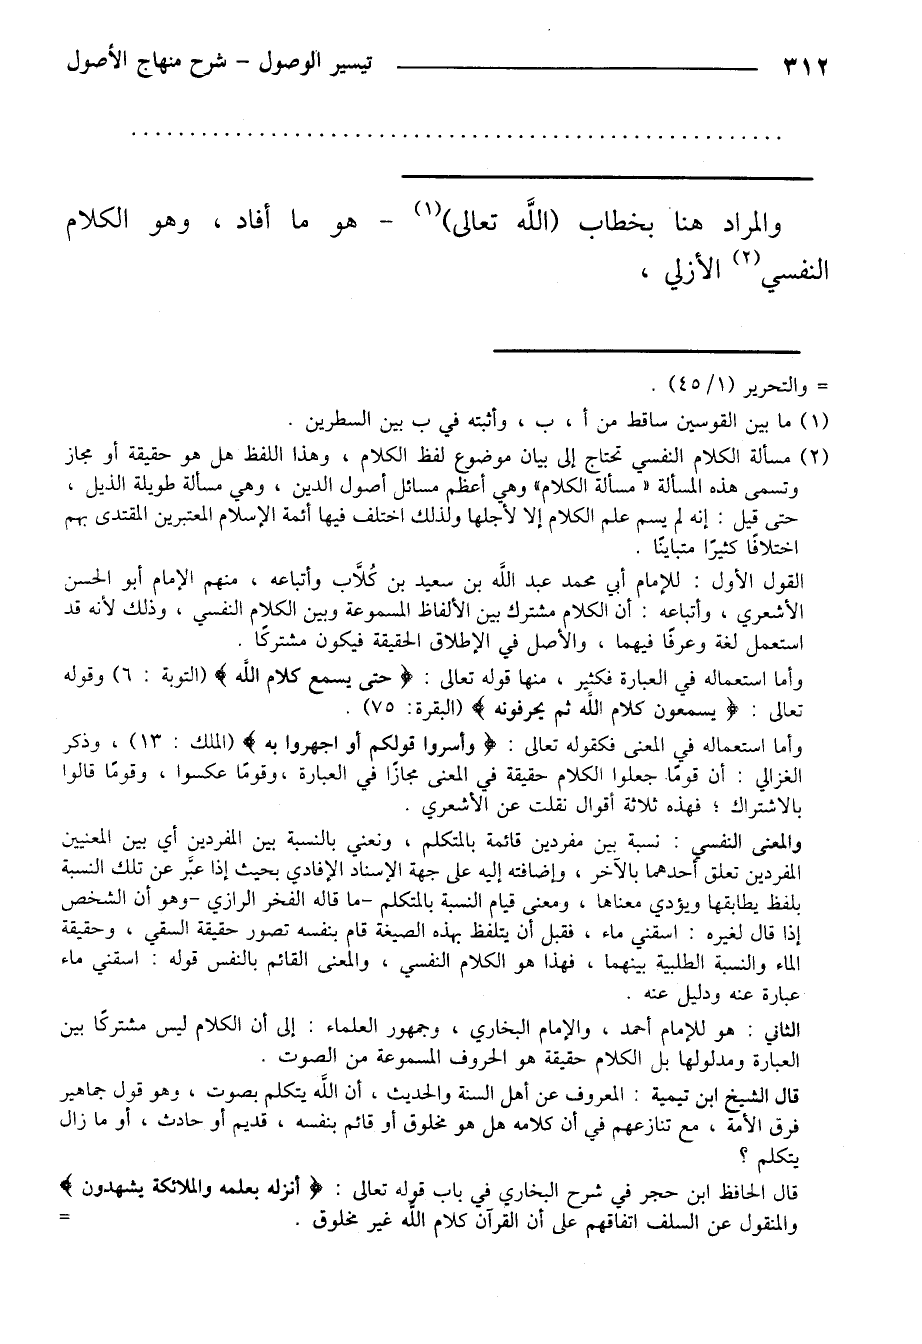 ٣١٢ ــــــــــــــــــ تيسير الوصول – شرح منهاج الأصول
..........................................................
والمراد هنا بخطاب (اللَّه تعالى)(١) – هو ما أفاد ، وهو الكلام
النفسي(٢) الأزلي ،
= والتحرير (٤٥/١) .
(١) ما بين القوسين ساقط من أ ، ب ، وأثبته في ب بين السطرين .
(٢) مسألة الكلام النفسي تحتاج إلى بيان موضوع لفظ الكلام ، وهذا اللفظ هل هو حقيقة أو مجاز
وتسمى هذه المسألة « مسألة الكلام» وهي أعظم مسائل أصول الدين ، وهي مسألة طويلة الذيل ،
حتى قيل : إنه لم يسم علم الكلام إلا لأجلها ولذلك اختلف فيها أئمة الإسلام المعتبرين المقتدى بهم
اختلافًا كثيرًا متباينًا .
القول الأول : للإمام أبي محمد عبد اللَّه بن سعيد بن كُلَّاب وأتباعه ، منهم الإمام أبو الحسن
الأشعري ، وأتباعه : أن الكلام مشترك بين الألفاظ المسموعة وبين الكلام النفسي ، وذلك لأنه قد
استعمل لغة وعرفًا فيهما ، والأصل في الإطلاق الحقيقة فيكون مشتركًا .
وأما استعماله في العبارة فكثير ، منها قوله تعالى : ﴿ حتى يسمع كلام اللَّه ﴾ (التوبة : ٦) وقوله
تعالى : ﴿ يسمعون كلام اللَّه ثم يحرفونه ﴾ (البقرة: ٧٥) .
وأما استعماله في المعنى فكقوله تعالى : ﴿ وأسروا قولكم أو اجهروا به ﴾ (الملك : ١٣) ، وذكر
الغزالي : أن قومًا جعلوا الكلام حقيقة في المعنى مجازًا في العبارة ،وقومًا عكسوا ، وقومًا قالوا
بالاشتراك ؛ فهذه ثلاثة أقوال نقلت عن الأشعري .
والمعنى النفسي : نسبة بين مفردين قائمة بالمتكلم ، ونعني بالنسبة بين المفردين أي بين المعنيين
المفردين تعلق أحدهما بالآخر ، وإضافته إليه على جهة الإسناد الإفادي بحيث إذا عبَّر عن تلك النسبة
بلفظ يطابقها ويؤدي معناها ، ومعنى قيام النسبة بالمتكلم –ما قاله الفخر الرازي –وهو أن الشخص
إذا قال لغيره : اسقني ماء ، فقبل أن يتلفظ بهذه الصيغة قام بنفسه تصور حقيقة السقي ، وحقيقة
الماء والنسبة الطلبية بينهما ، فهذا هو الكلام النفسي ، والمعنى القائم بالنفس قوله : اسقني ماء
عبارة عنه ودليل عنه .
الثاني : هو للإمام أحمد ، والإمام البخاري ، وجمهور العلماء : إلى أن الكلام ليس مشتركًا بين
العبارة ومدلولها بل الكلام حقيقة هو الحروف المسموعة من الصوت .
قال الشيخ ابن تيمية : المعروف عن أهل السنة والحديث ، أن اللَّه يتكلم بصوت ، وهو قول جماهير
فرق الأمة ، مع تنازعهم في أن كلامه هل هو مخلوق أو قائم بنفسه ، قديم أو حادث ، أو ما زال
يتكلم ؟
قال الحافظ ابن حجر في شرح البخاري في باب قوله تعالى : ﴿ أنزله بعلمه والملائكة يشهدون ﴾
والمنقول عن السلف اتفاقهم على أن القرآن كلام اللَّه غير مخلوق . =